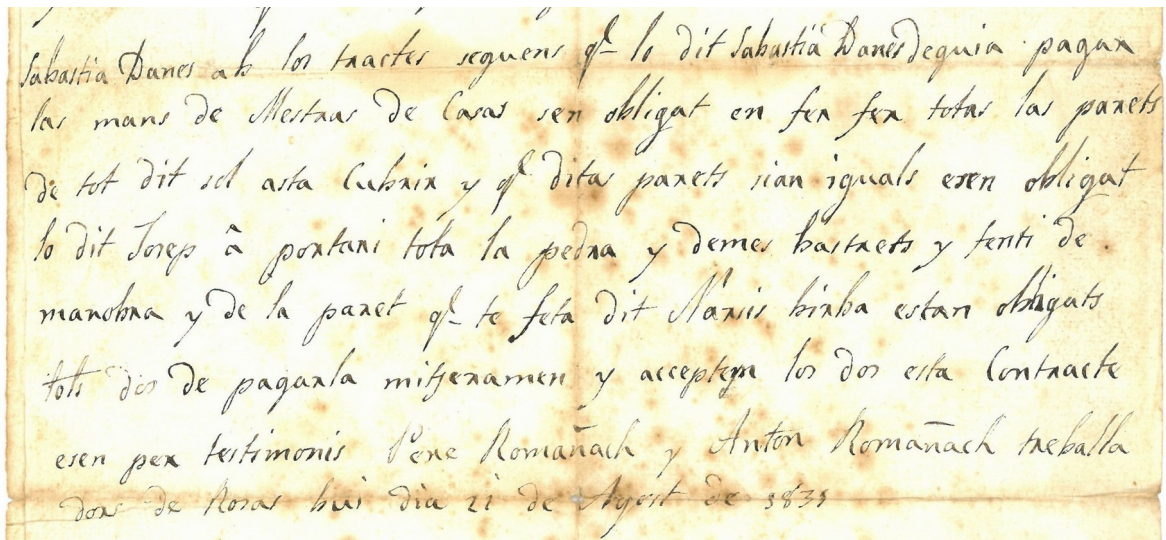 Sabastiá Danes ab los tractes seguens q.e lo dit Sabastiá Danes deguia pagar
las mans de Mestras de Casas sen obligat en fer fer totas las parets
de tot dit sol asta Cubrir y q.e ditas parets sian iguals esen obligat
lo dit Josep â portari tota la pedra y demes bastrets y ferli de
manobra y de la paret q.e te feta dit Narsis birba estan obligats
tots dos de pagarla mitjeramen y acceptem los dos esta Contracte
esen per testimonis Pere Romañach y Anton Romañach treballa
dors de Rosas hui dia 21 de Agost de 1835